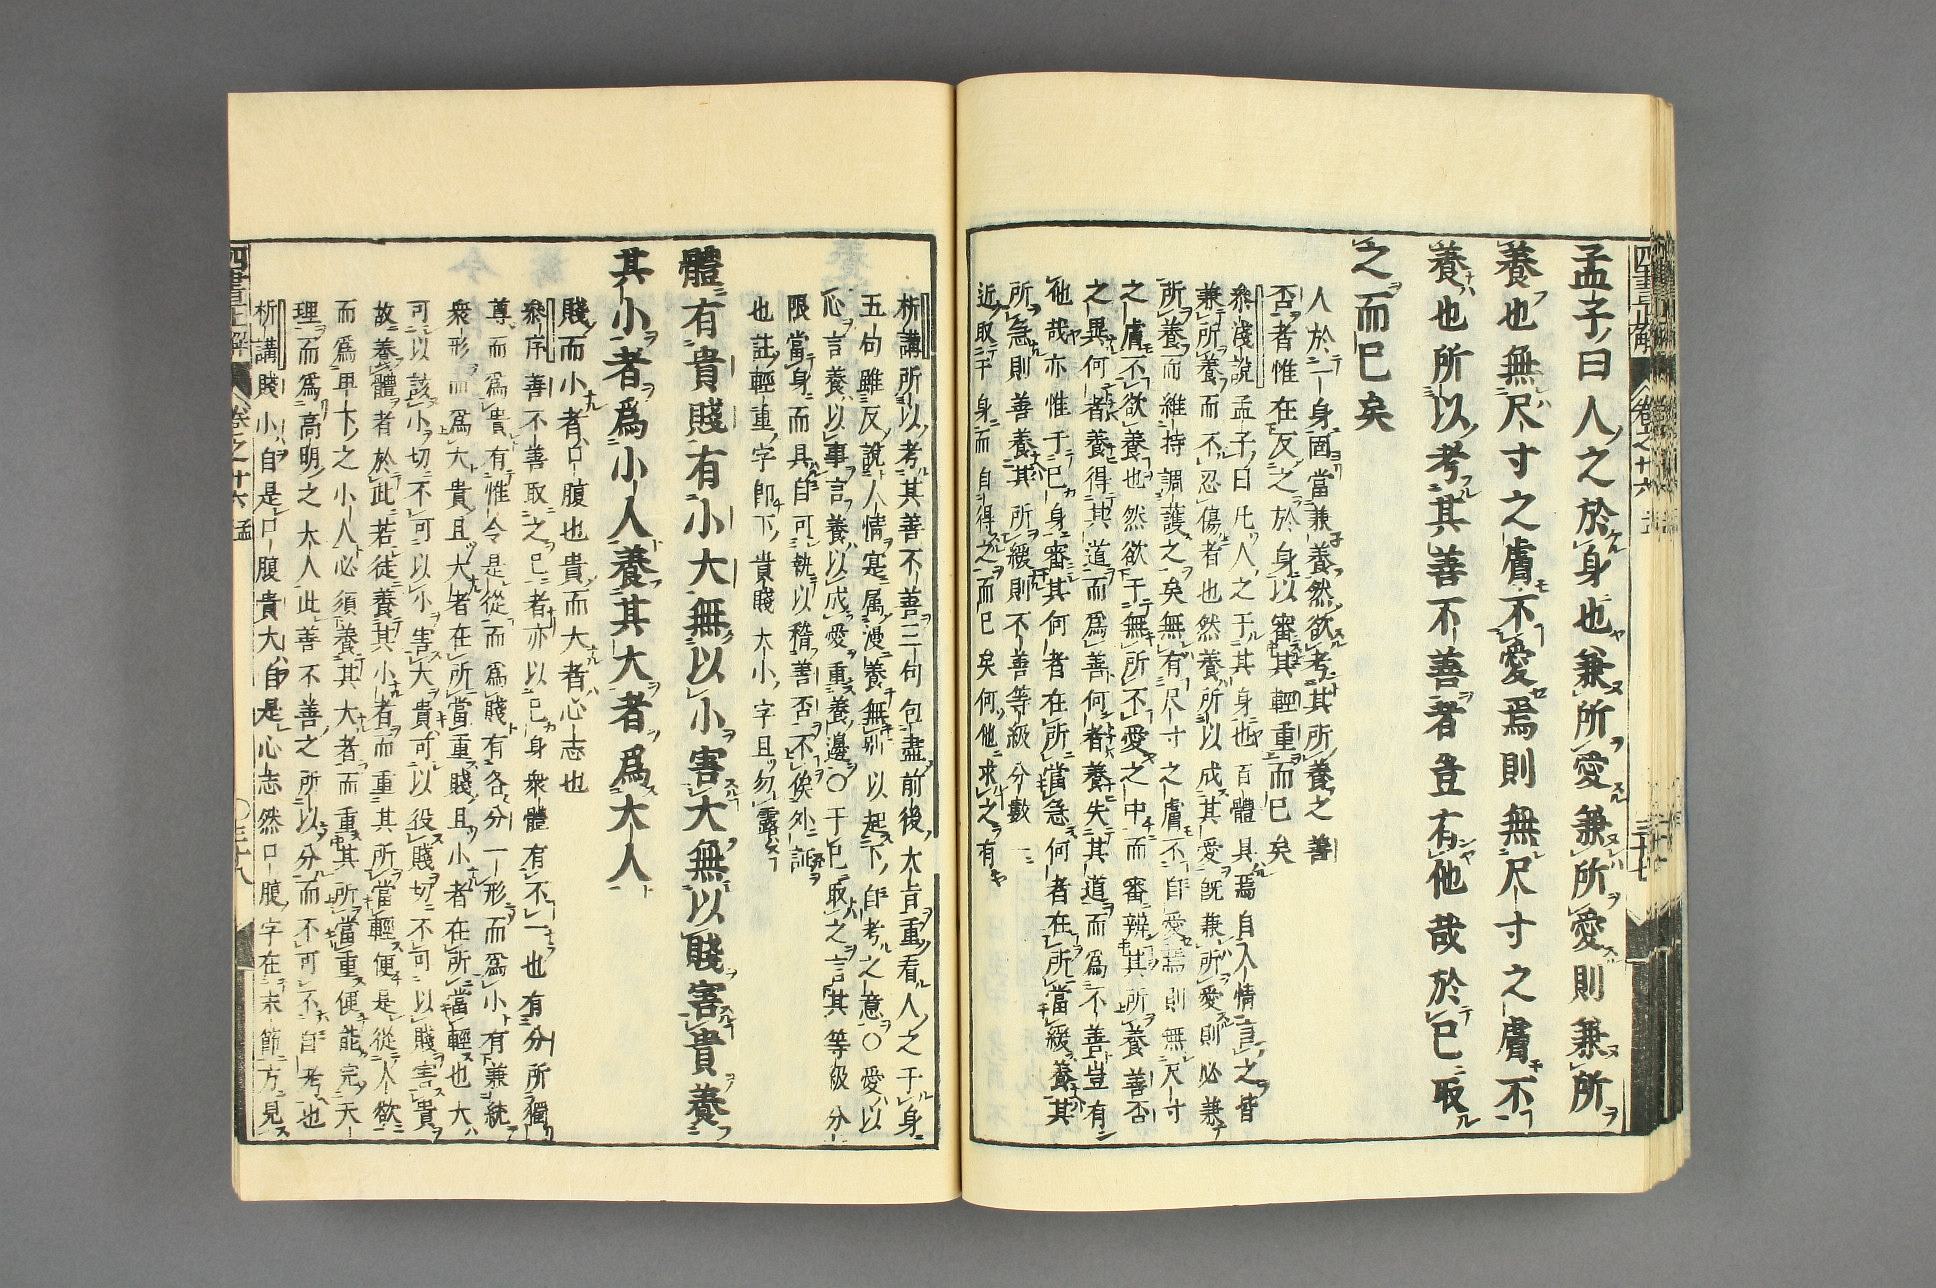 四書正解
卷之十六
三十七
孟子曰人之於身也兼所愛兼所愛則兼所
養也無尺寸之膚不愛焉則無尺寸之膚不
養也所以考其善不善者豈有他哉於已取
之而已矣
人於一身固當兼養然欲考其所養之善
否者惟在反之於身以審其輕重而已矣
衆淺說孟子曰凡人之于其身也百體具焉自人情言之皆
兼所養而不忍傷者也然養所以成其愛既兼所愛則必兼
所養而維持調護之矣無有尺寸之膚不自愛焉則無尺寸
之膚不欲養也然欲于無所不愛之中而審辨其所養善否
之異何者養得其道而爲善何者養失其道而爲不善豈有
他哉亦惟于已身審其何者在所當急何者在所當緩養其
所急則善養其所緩則不善等級分數
近取于身而自得之而已矣何他求之有
析講所以考其善不善三句包盡前後大旨重看人之于身
五句雖反說人情寔属漫養無別以起下即考之意〇愛以
心言養以事言養以成愛重養邊〇于已取之言其等級分
限當身而具自可執以稽善否不俟外証
也註輕重字即下貴賤大小字且勿露
體有貴賤有小大無以小害大無以賤害貴養
其小者爲小人養其大者爲大人
賤而小者口腹也貴而大者心志也
衆序善不善取之已者亦以已身衆體有不一也有分所獨
尊而爲貴有惟令是從而爲賤有各分一形而爲小有兼統
衆形而爲大貴且大者在所當重賤且小者在所當輕也大
可以該小切不可以小害大貴可以役賤切不可以賤害貴
故養體者於此若徒養其小者而重其所當輕便是從人欲
而爲卑下之小人必須養其大者而重其所當重便能完天
理而爲高明之大人此善不善之所以分而不可不自考也
析講賤小自是口腹貴大自是心志然口腹字在末節方見
四書正解
卷之十六
孟
〇三十八